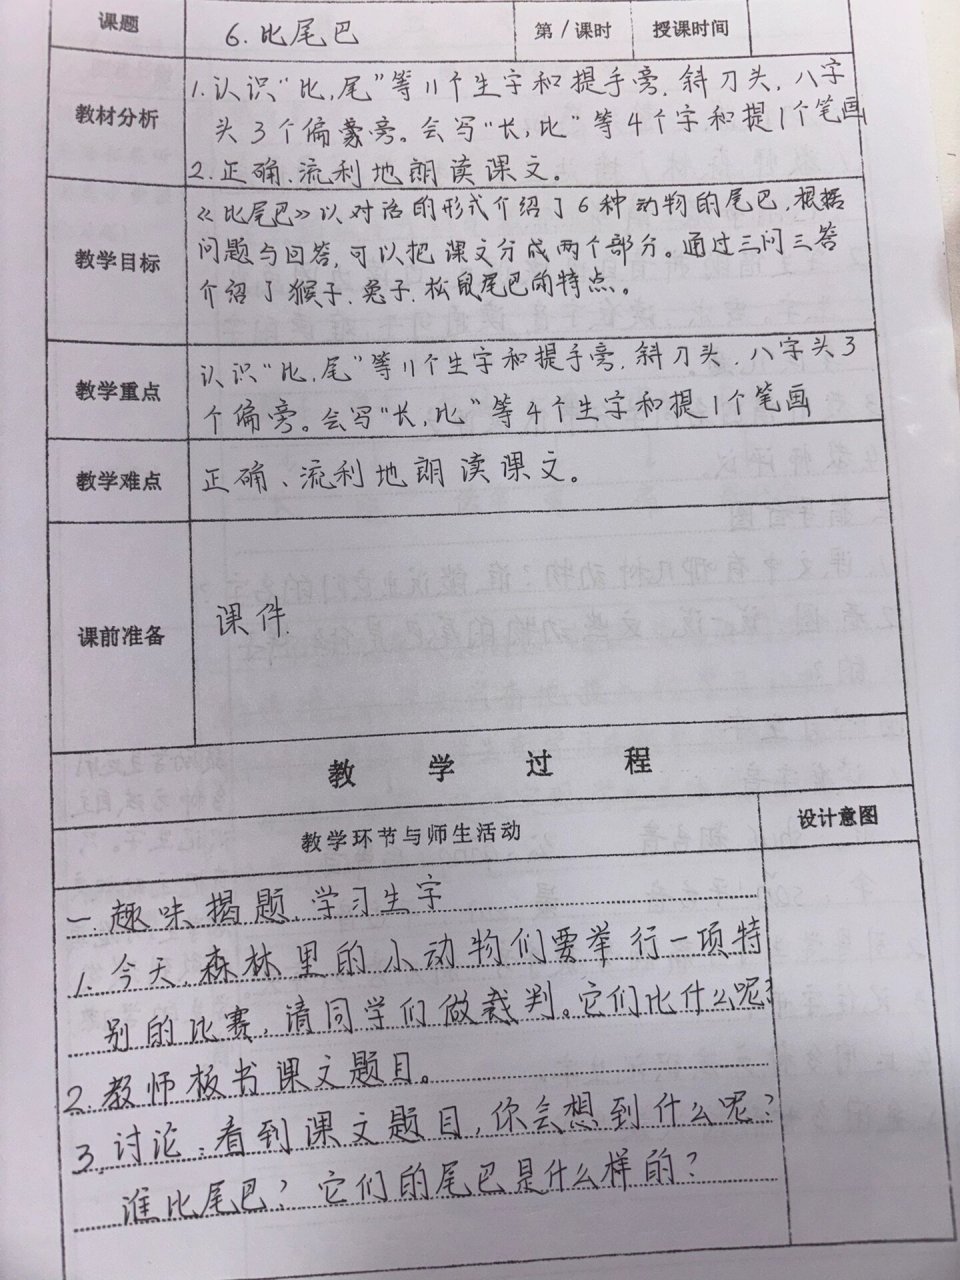 课题 6.比尾巴 第1课时 授课时间
教材分析
1.认识“比,尾”等11个生字和提手旁.斜刀头,八字
头3个偏旁。会写“长,比”等4个字和提1个笔画
2.正确.流利地朗读课文。
教学目标
《比尾巴》以对话的形式介绍了6种动物的尾巴,根据
问题与回答,可以把课文分成两个部分。通过三问三答
介绍了猴子.兔子.松鼠尾巴的特点。
教学重点
认识“比,尾”等11个生字和提手旁,斜刀头.八字头3
个偏旁。会写“长,比”等4个生字和提1个笔画
教学难点
正确、流利地朗读课文。
课前准备
课件.
教学过程
教学环节与师生活动 设计意图
一.趣味揭题.学习生字
1.今天,森林里的小动物们要举行一项特
别的比赛,请同学们做裁判。它们比什么呢?
2.教师板书课文题目。
3.讨论:看到课文题目,你会想到什么呢?
谁比尾巴?它们的尾巴是什么样的?